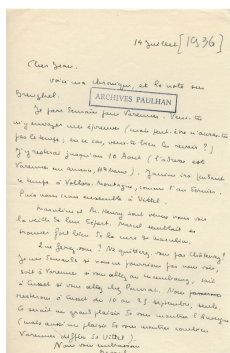 14 Juillet [1936]
Cher Jean,
voici ma chronique, et la note sur
Breughel.
ARCHIVES PAULHAN
Je pars demain pour Varennes. Peux-tu
m'y envoyer mes épreuves (mais peut-être n'auras-tu
pas le temps; en ce cas, veux-tu bien les revoir ?)
J'y resterai jusqu'au 10 Août (l'adresse est
Varennes sur
le temps, à Vollore-Montagne, comme l'an dernier.
Puis nous irons ensuite à Vittel.
et Mr. Henry sont venus nous voir
la veille de leur départ. Marcel semblait se
trouver fort bien de la cure de
Que ferez-vous ? Ne quitterez-vous pas Châtenay ?
Je me demande si nous ne pourrions pas nous voir,
soit à Varennes si vous allez au
à Cusset si vous allez
resterons à Cusset du 10 au 25 septembre,
Ce serait un grand plaisir de vous montrer l'Auvergne
(mais aussi un plaisir de vous montrer combien
Varennes diffère de Vittel).
Nous vous embrassons
Marcel